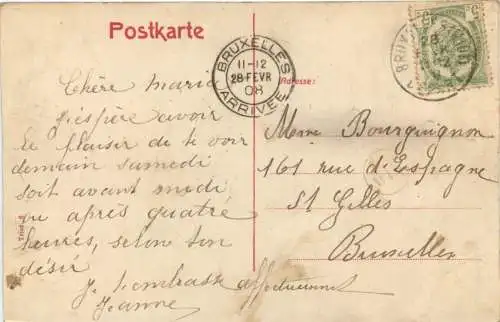 Postkarte
BRUXELLES
11-12
28 FEVR
08
ARRIVEE
Adresse:
Chère Marie
J'espère avoir
le plaisir de te voir
demain samedi
soit avant midi
ou après quatre
heures, selon ton
désir
Je t'embrasse affectueusement
Jeanne
Mme Bourguignon
161 rue d'Espagne
St Gilles
Bruxelles